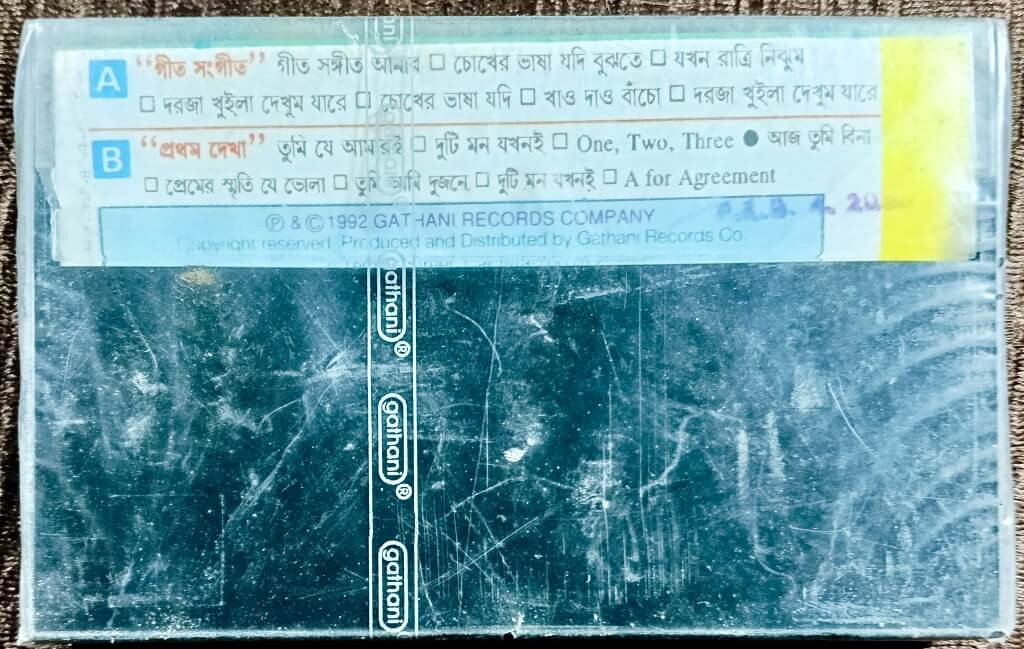 A “গীত সংগীত” গীত সঙ্গীত আমার □ চোখের ভাষা যদি বুঝতে □ যখন রাত্রি নিঝুম
□ দরজা খুইলা দেখুম যারে □ চোখের ভাষা যদি □ খাও দাও বাঁচো □ দরজা খুইলা দেখুম যারে
B “প্রথম দেখা” তুমি যে আমারই □ দুটি মন যখনই □ One, Two, Three ● আজ তুমি বিনা
□ প্রেমের স্মৃতি যে ভোলা □ তুমি আমি দুজনে □ দুটি মন যখনই □ A for Agreement
℗ & © 1992 GATHANI RECORDS COMPANY
Copyright reserved. Produced and Distributed by Gathani Records Co.
gathani®
gathani®
gathani